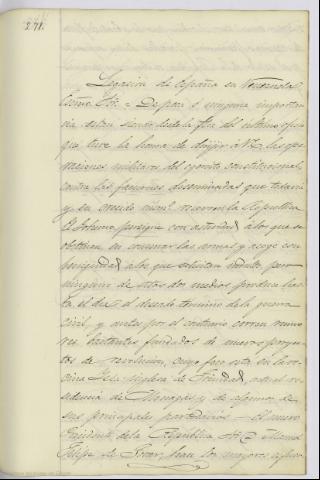 271.
Legacion de España en Venezuela
Exmo. Sor. = De poca o ninguna importan
cia estan siendo desde la fha del ultimo oficio
que tuve la honra de dirijir á V.E. las ope
raciones militares del ejercito constitucional,
contra las facciones diseminadas que todavia
y en crecido numº recorren la Republica
El Gobierno persigue con actividad á los que se
obstinan en conservar las armas y acoge con
benignidad á los que solicitan indulto, pero
ninguno de estos dos medios produce has
ta el dia el deseado termino de la guerra
civil, y antes por el contrario corren rumo
res bastantes fundados de nuevos proyec
tos de revolucion, cuyo foco esta en la ve
cina Isla inglesa de Trinidad, actual re
sidencia de Monagas y de algunos de
sus principales partidarios. - El nuevo
Presidente de la Republica
Felipe de Tovar, hace los mayores esfuer